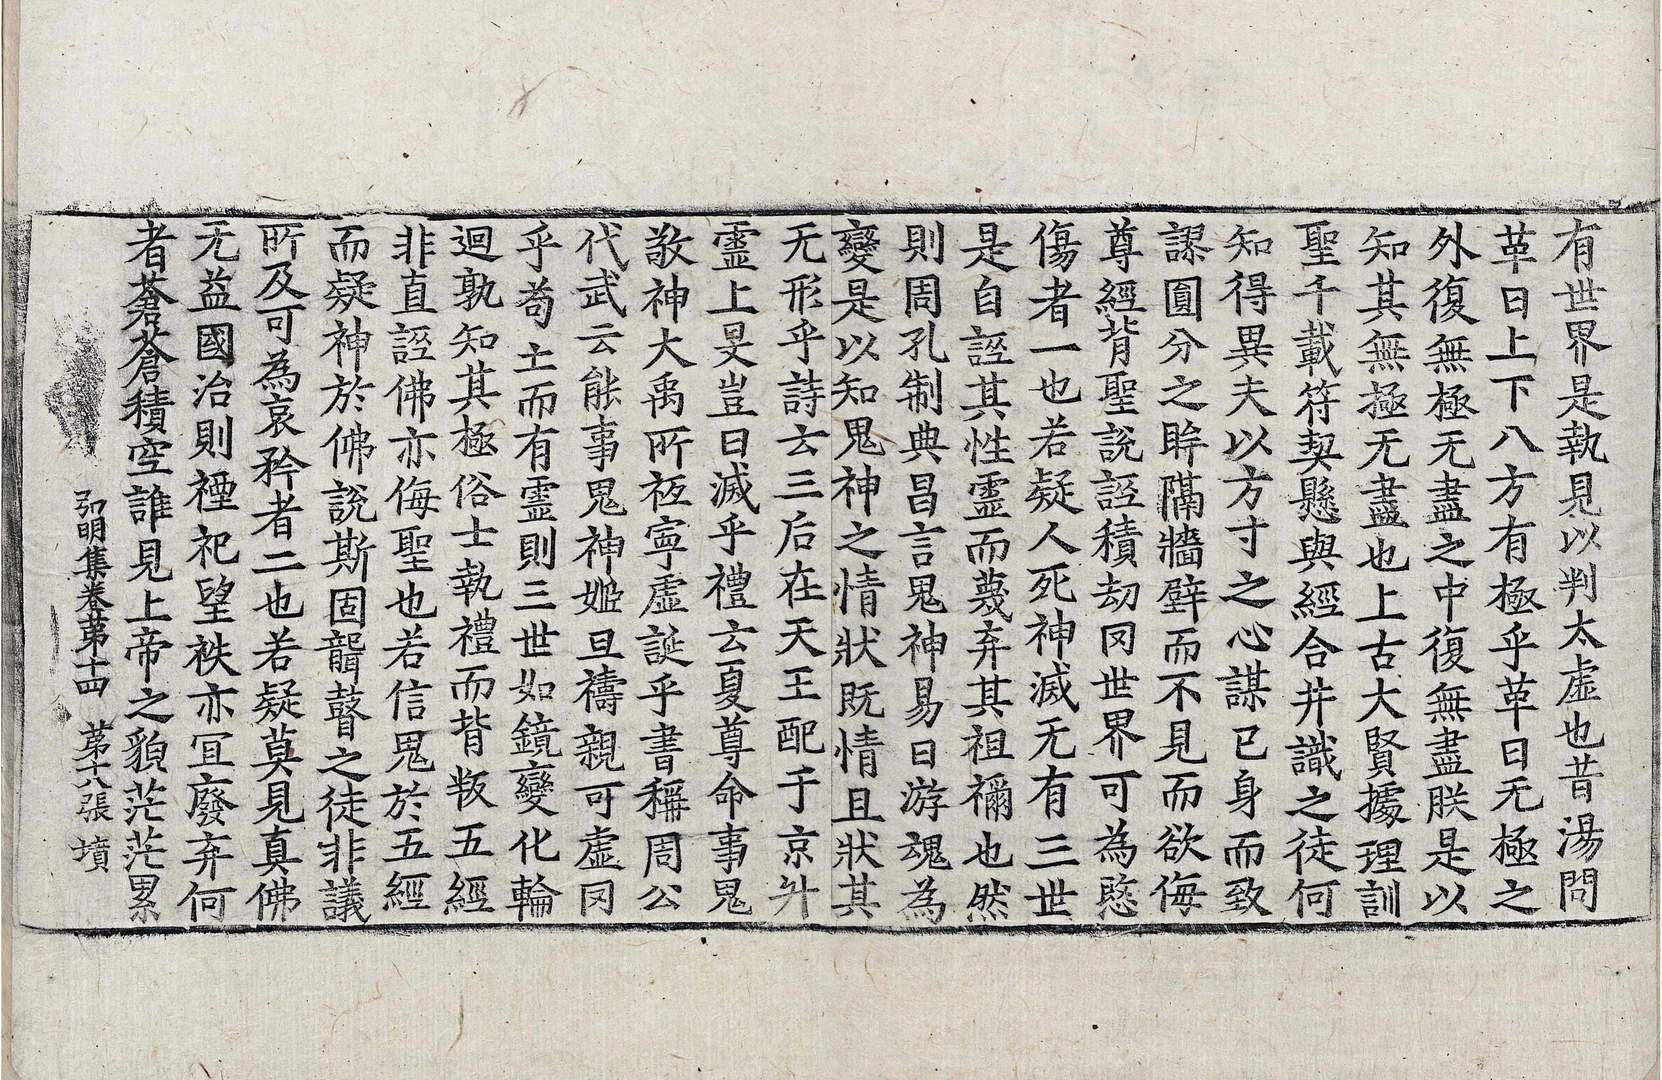 有世界是執見以判太虛也昔湯問
革曰上下八方有極乎革曰无極之
外復無極无盡之中復無盡朕是以
知其無極无盡也上古大賢據理訓
聖千載符契懸與經合井識之徒何
知得異夫以方寸之心謀已身而致
謬圓分之眸隔牆壁而不見而欲侮
尊經背聖說誣積劫罔世界可為愍
傷者一也若疑人死神滅无有三世
是自誣其性靈而蔑弃其祖禰也然
則周孔制典昌言鬼神易曰游魂為
變是以知鬼神之情狀既情且狀其
无形乎詩云三后在天王配于京升
靈上旻豈曰滅乎禮云夏尊命事鬼
敬神大禹所祗寧虛誕乎書稱周公
代武云能事鬼神姬旦禱親可虛罔
乎苟土而有靈則三世如鏡變化輪
迴孰知其極俗士執禮而背叛五經
非直誣佛亦侮聖也若信鬼於五經
而疑神於佛說斯固聾瞽之徒非議
所及可為哀矜者二也若疑莫見真佛
无益國治則禋祀望秩亦冝廢弃何
者蒼蒼積空誰見上帝之貌茫茫累
弘明集卷苐十四　苐十八張　墳